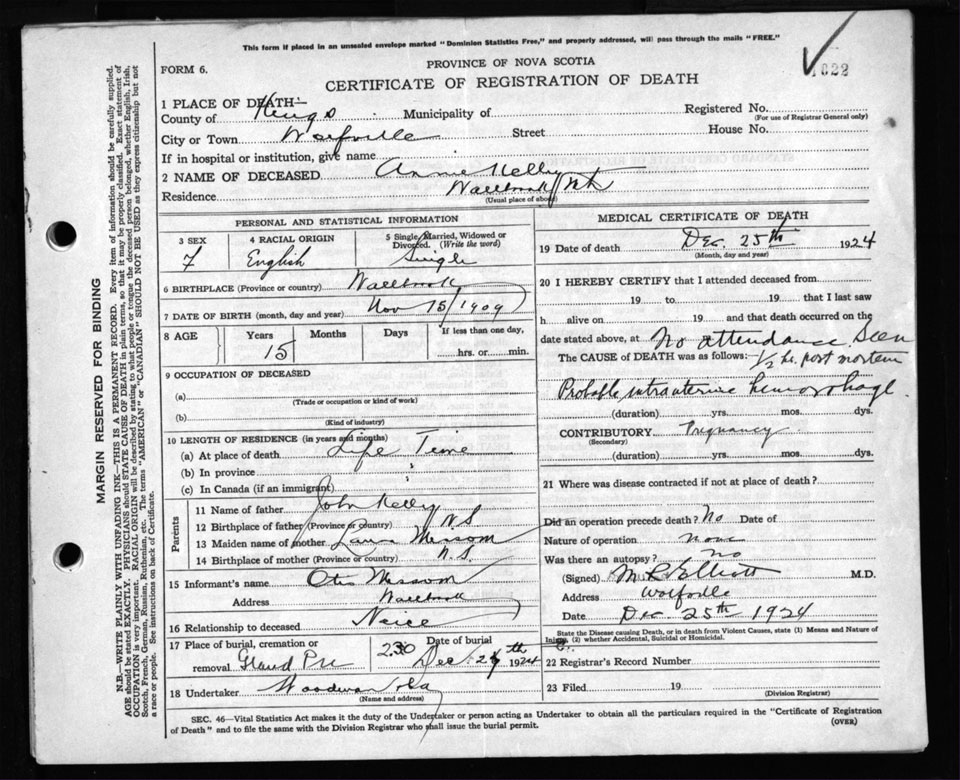 This form if placed in an unsealed envelope marked "Dominion Statistics Free," and properly addressed, will pass through the mails "FREE."
1622
FORM 6.
PROVINCE OF NOVA SCOTIA
CERTIFICATE OF REGISTRATION OF DEATH
1 PLACE OF DEATH—
County of Kings Municipality of Registered No.
(For use of Registrar General only)
City or Town Wolfville Street House No.
If in hospital or institution, give name
2 NAME OF DECEASED Annie Kelly
Residence Wallbrook
(Usual place of abode)
PERSONAL AND STATISTICAL INFORMATION
3 SEX 4 RACIAL ORIGIN 5 Single, Married, Widowed or Divorced. (Write the word)
F English Single
6 BIRTHPLACE (Province or country) Wallbrook
7 DATE OF BIRTH (month, day and year) Nov 15/1909
8 AGE Years Months Days If less than one day,
15 hrs. or min.
9 OCCUPATION OF DECEASED
(a)
(Trade or occupation or kind of work)
(b)
(Kind of industry)
10 LENGTH OF RESIDENCE (in years and months)
(a) At place of death Life Time
(b) In province
(c) In Canada (if an immigrant)
Parents
11 Name of father John Kelly
12 Birthplace of father (Province or country) N S
13 Maiden name of mother Laura Messom
14 Birthplace of mother (Province or country) N. S.
15 Informant's name Otis Messom
Address Wallbrook
16 Relationship to deceased Neice
17 Place of burial, cremation or removal Grand Pre
Date of burial
230 Dec 1924
18 Undertaker Woodman
(Name and address)
MEDICAL CERTIFICATE OF DEATH
19 Date of death Dec. 25th 1924
(Month, day and year)
20 I HEREBY CERTIFY that I attended deceased from
19 to 19 that I last saw
h alive on 19 and that death occurred on the
date stated above, at No attendance Seen
The CAUSE of DEATH was as follows: 1/2 hr. post mortem
Probable intrauterine hemorrhage
(duration) yrs. mos. dys.
CONTRIBUTORY Pregnancy
(Secondary)
(duration) yrs. mos. dys.
21 Where was disease contracted if not at place of death?
Did an operation precede death? No Date of
Nature of operation None
Was there an autopsy? No
(Signed) M R Elliott M.D.
Address Wolfville
Date Dec. 25th 1924
State the Disease causing Death, or in death from Violent Causes, state (1) Means and Nature of
Injury, (2) whether Accidental, Suicidal or Homicidal.
22 Registrar's Record Number
23 Filed 19
(Division Registrar)
SEC. 46—Vital Statistics Act makes it the duty of the Undertaker or person acting as Undertaker to obtain all the particulars required in the "Certificate of Registration
of Death" and to file the same with the Division Registrar who shall issue the burial permit. (OVER)
MARGIN RESERVED FOR BINDING
N.B.—WRITE PLAINLY WITH UNFADING INK—THIS IS A PERMANENT RECORD. Every item of information should be carefully supplied.
AGE should be stated EXACTLY. PHYSICIANS should STATE CAUSE OF DEATH in plain terms, so that it may be properly classified. Exact statement of
OCCUPATION is very important. RACIAL ORIGIN will be described by stating to what people or tongue the deceased person belonged, whether English, Irish,
Scotch, French, German, Russian, Ruthenian, etc. The terms "AMERICAN" or "CANADIAN" SHOULD NOT BE USED as they express citizenship but not
a race or people. See instructions on back of Certificate.